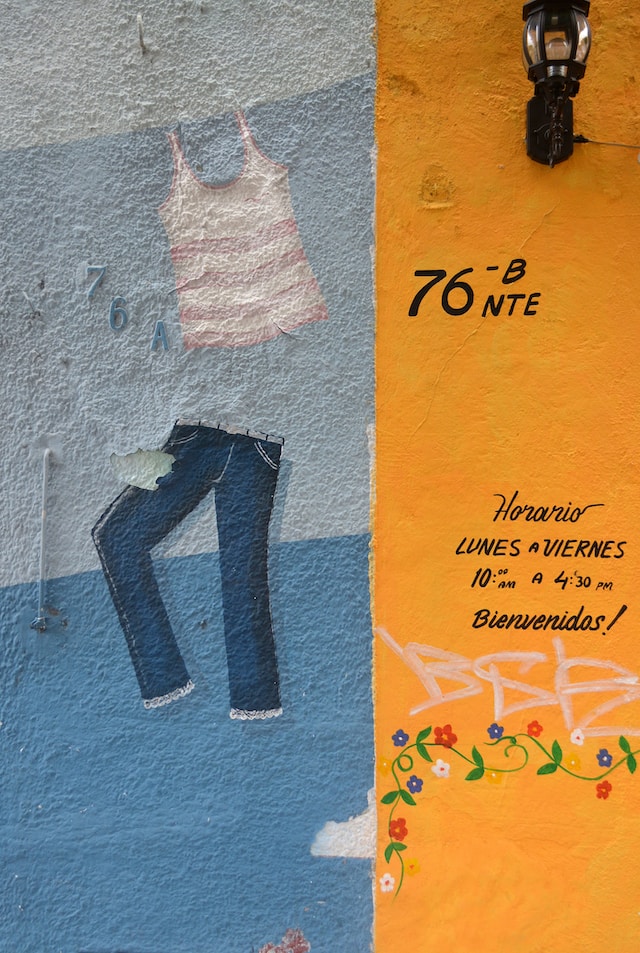 76 A
76-B
NTE
Horario
LUNES A VIERNES
10:00 AM A 4:30 PM
Bienvenidos!